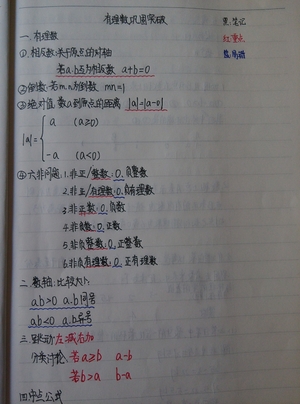 有理数巩固突破
黑:笔记
红:重点
蓝:易错
一.有理数
①相反数:关于原点的对称
若a.b互为相反数 a+b=0
②倒数:若m.n为倒数 mn=1
③绝对值:数a到原点的距离 |a|=|a-0|
|a|=
a (a≥0)
-a (a<0)
④六非问题:1.非正/整数:0.负整数
2.非正/有理数:0.负有理数
3.非正数:0.负数
4.非负数:0.正数
5.非负整数:0.正整数
6.非负有理数:0.正有理数
二.数轴:比较大小
ab>0 a.b同号
ab<0 a.b异号
三.跳动:左减右加
分类讨论:若a≥b a-b
若b>a b-a
四.中点公式